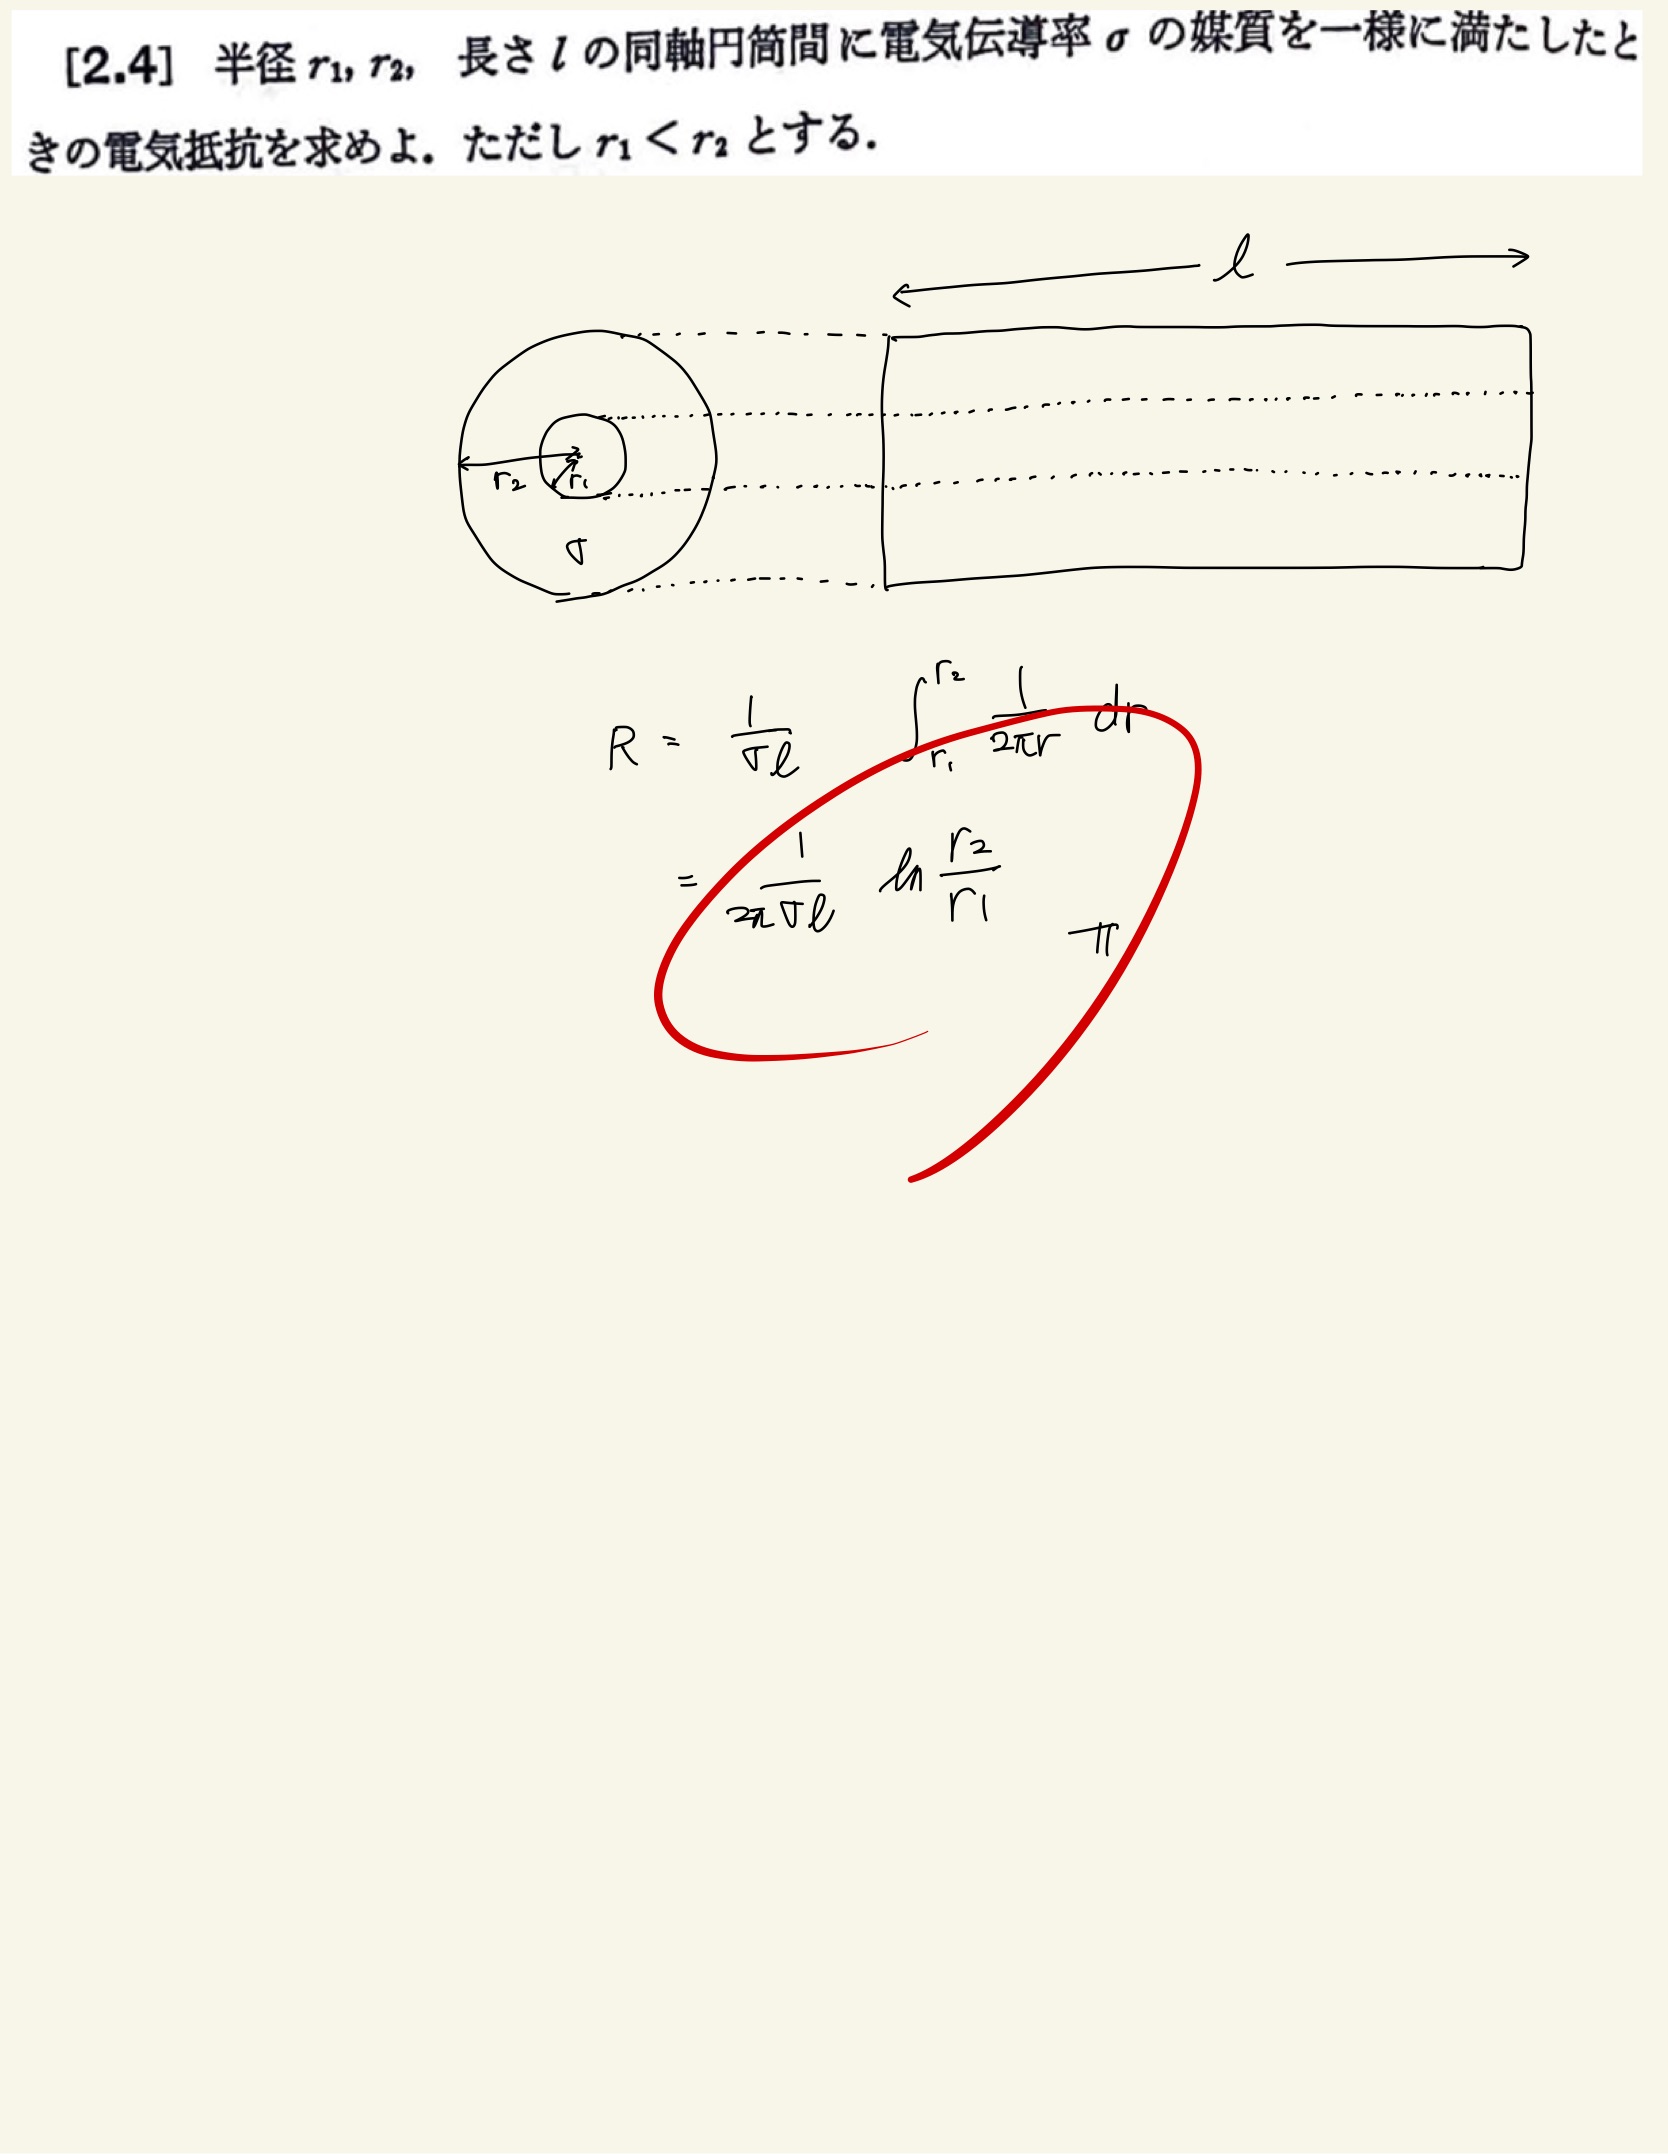 [2.4] 半径 r₁, r₂, 長さ l の同軸円筒間に電気伝導率 σ の媒質を一様に満たしたと
きの電気抵抗を求めよ. ただし r₁ < r₂ とする.
l
r₂ r₁
σ
R = 1/(σl) ∫_{r₁}^{r₂} 1/(2πr) dr
= 1/(2πσl) ln r₂/r₁